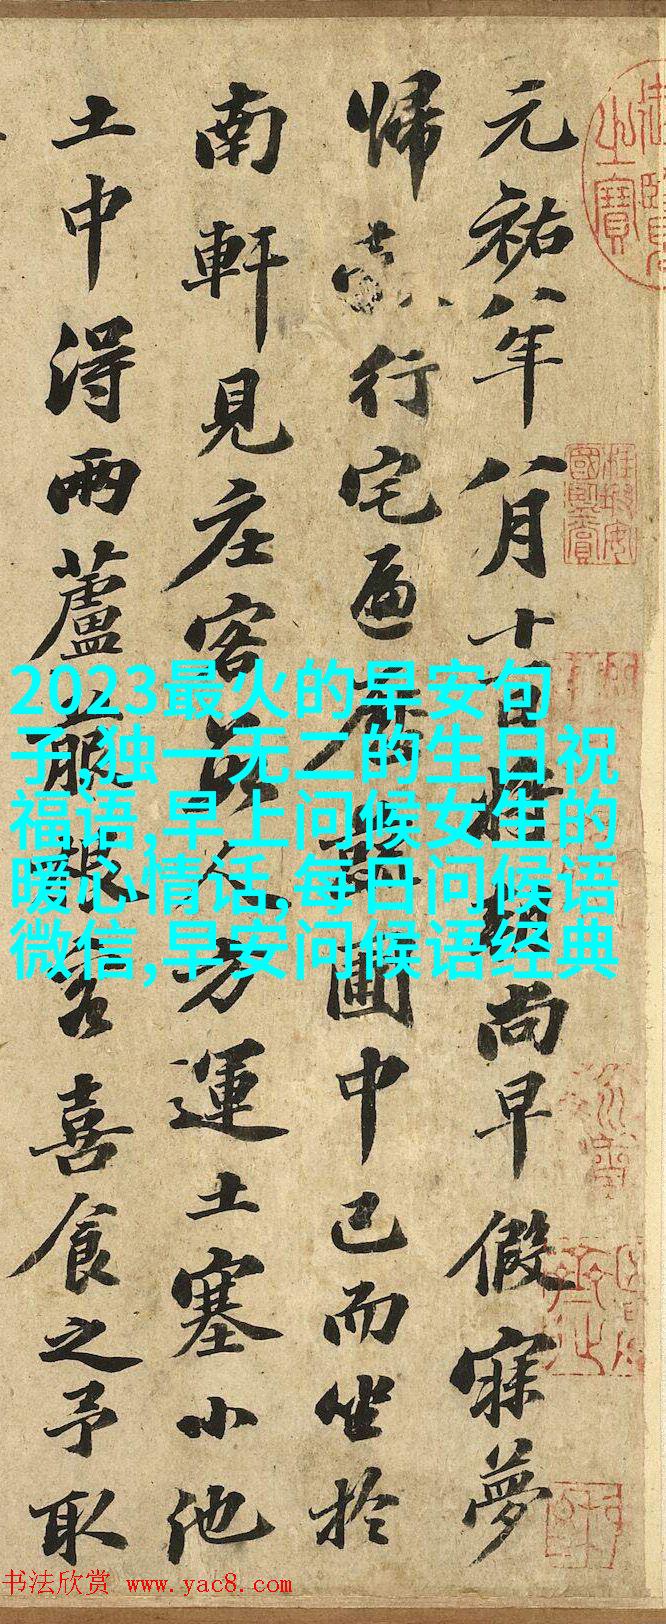 元祐八年八月十一日將朝尚早假寐夢
歸行宅遍歷蔬圃中已而坐於
南軒見庄客數人方運土塞小池
土中得兩蘆菔根客喜食之予取
2023最火的早安句
子,独一无二的生日祝
福语,早上问候女生的
暖心情话,每日问候语
微信,早安问候语经典
书法欣赏 www.yac8.com